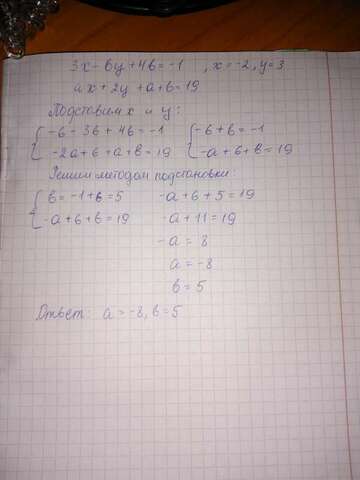 3x - by + 4b = -1 , x = -2, y = 3
ax + 2y + a + b = 19
Подставим x и y:
{ -6 - 3b + 4b = -1 { -6 + b = -1
-2a + 6 + a + b = 19 -a + 6 + b = 19
Решим методом подстановки:
{ b = -1 + 6 = 5 -a + 6 + 5 = 19
-a + 6 + b = 19 -a + 11 = 19
-a = 8
a = -8
b = 5
Ответ: a = -8, b = 5